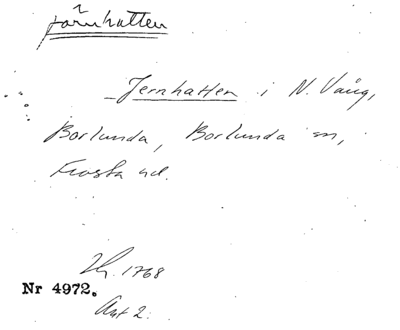 Järnhatten
Jernhatten i N. Vång,
Borlunda, Borlunda sn,
Frosta hd.
1768
Nr 4972.
Akt 2.